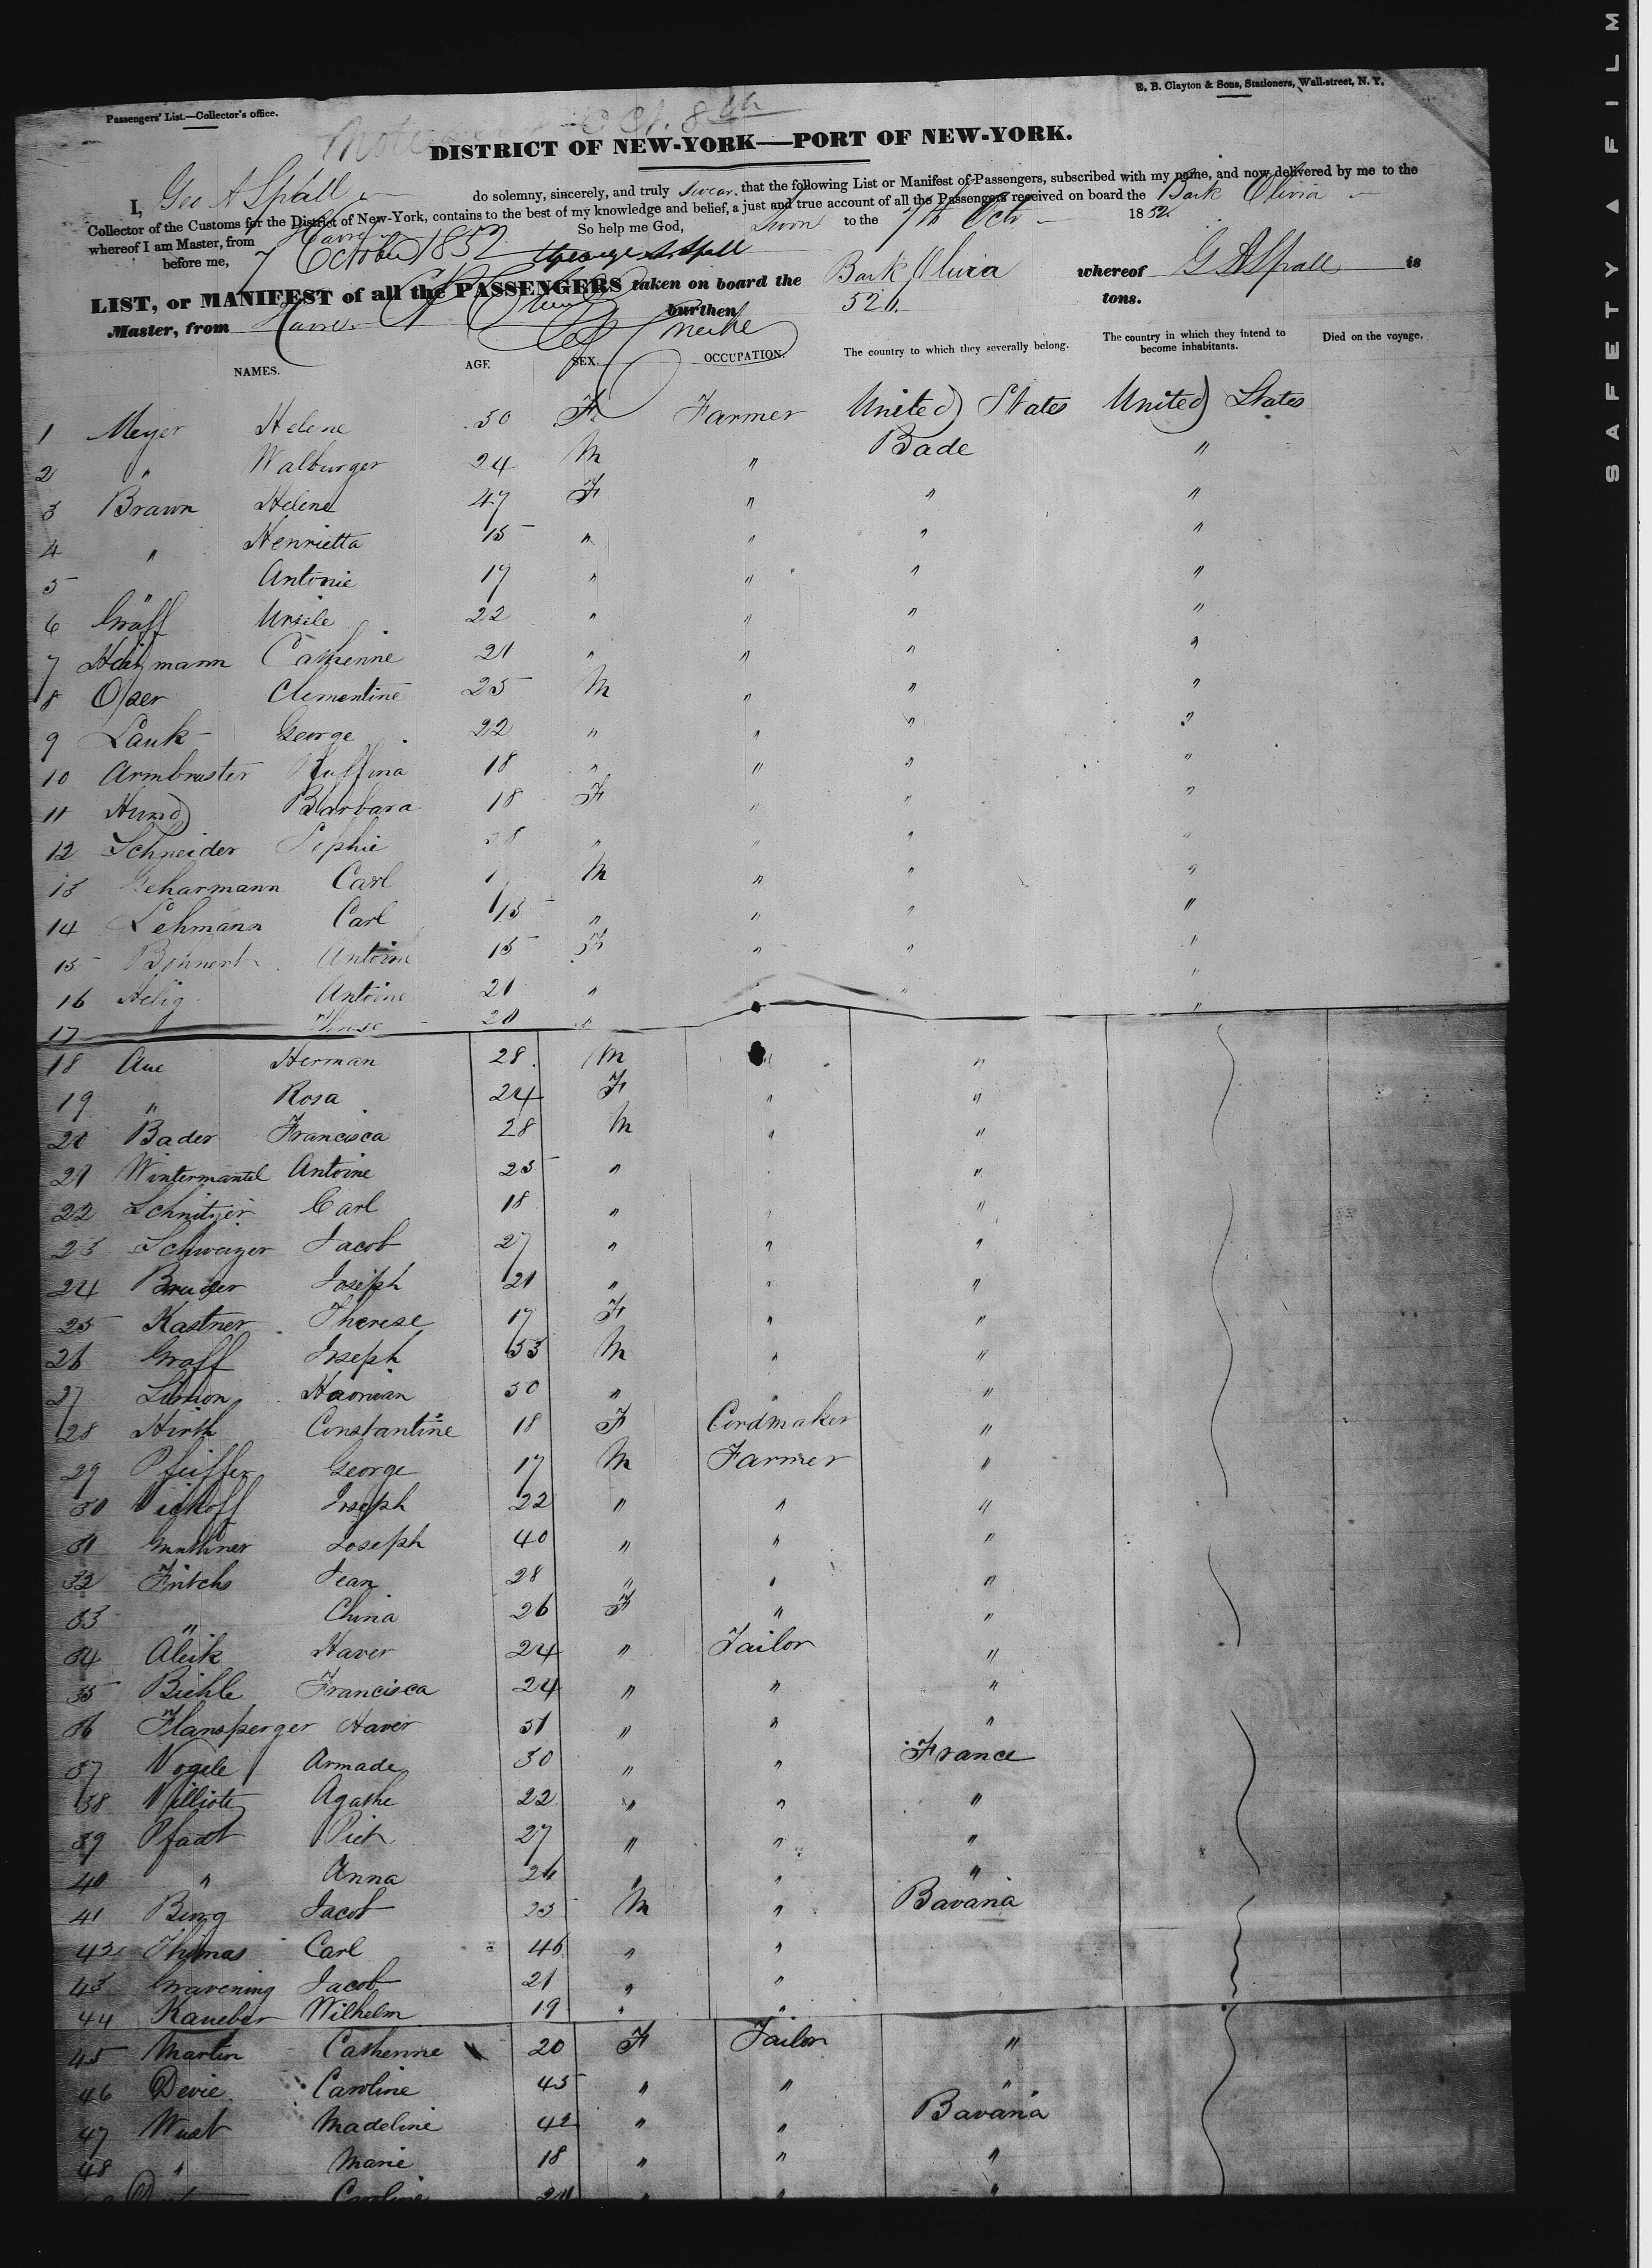 SAFETY ▲ FILM
Passengers' List.—Collector's office.
E. B. Clayton & Sons, Stationers, Wall-street, N. Y.
Oct. 8th
DISTRICT OF NEW-YORK—PORT OF NEW-YORK.
I, Geo A Spall do solemny, sincerely, and truly swear that the following List or Manifest of Passengers, subscribed with my name, and now delivered by me to the
Collector of the Customs for the District of New-York, contains to the best of my knowledge and belief, a just and true account of all the Passengers received on board the Bark Olivia
whereof I am Master, from Havre So help me God, Sworn to the 7th Oct 1852.
before me, 7 October 1852 George A. Spall
LIST, or MANIFEST of all the PASSENGERS taken on board the Bark Olivia whereof G A Spall is
Master, from Havre burthen 526 tons.
NAMES. AGE. SEX. OCCUPATION. The country to which they severally belong. The country in which they intend to become inhabitants. Died on the voyage.
1 Meyer Helene 30 F Farmer United States United States
2 " Walburger 24 M " Bade "
3 Brawn Helene 47 F " " "
4 " Henrietta 15 " " " "
5 " Antonie 19 " " " "
6 Gräff Ursile 22 " " " "
7 Heitzmann Catherine 21 " " " "
8 Oser Clementine 25 M " " "
9 Lauk George 22 " " " "
10 Armbruster Ruffina 18 " " " "
11 Hund Barbara 18 F " " "
12 Schneider Sophie " " " "
13 Carl M " " "
14 Lehmann Carl 15 " " " "
15 Bohnert Antoine 15 F " " "
16 Helig Antoine 21 " " "
17 20 " "
18 Aue Herman 28 M " "
19 " Rosa 24 F " "
20 Bader Francisca 28 M " "
21 Wintermantel Antoine 25 " "
22 Schnitzer Carl 18 " " "
23 Schwayer Jacob 27 " " "
24 Bruder Joseph 21 " " "
25 Kastner Therese 17 F " "
26 Graff Joseph 53 M " "
27 30 " " "
28 Hirth Constantine 18 F Cordmaker "
29 Pfeiffer George 17 M Farmer "
30 Joseph 22 " " "
31 Joseph 40 " " "
32 Fritchs Jean 28 " " "
33 " China 26 F " "
34 Aleik Xaver 24 " Tailor "
35 Biehle Francisca 24 " " "
36 Flansperger Xaver 31 " " "
37 Vogele Armade 30 " " France
38 Villiote Agathe 22 " " "
39 Pfadt 27 " " "
40 " Anna 24 " " "
41 Burg Jacob 25 M " Bavaria
42 Thomas Carl 46 " "
43 Gravening Jacob 21 " "
44 Kaneber Wilhelm 19 " "
45 Martin Catherine 20 F Tailor "
46 Devie Caroline 45 " " "
47 Wust Madeline 42 " " Bavaria
48 " Marie 18 " " "
Caroline " " "